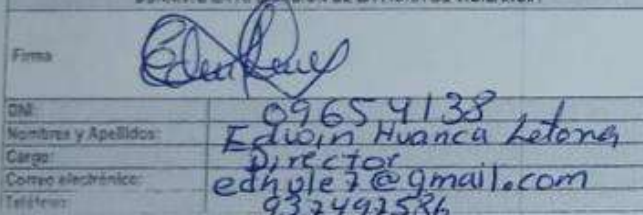 DURANTE LA
Firma
DNI: 09654138
Nombres y Apellidos: Edwin Huanca Letona
Cargo: Director
Correo electrónico: edhule7@gmail.com
Teléfono: 932492586